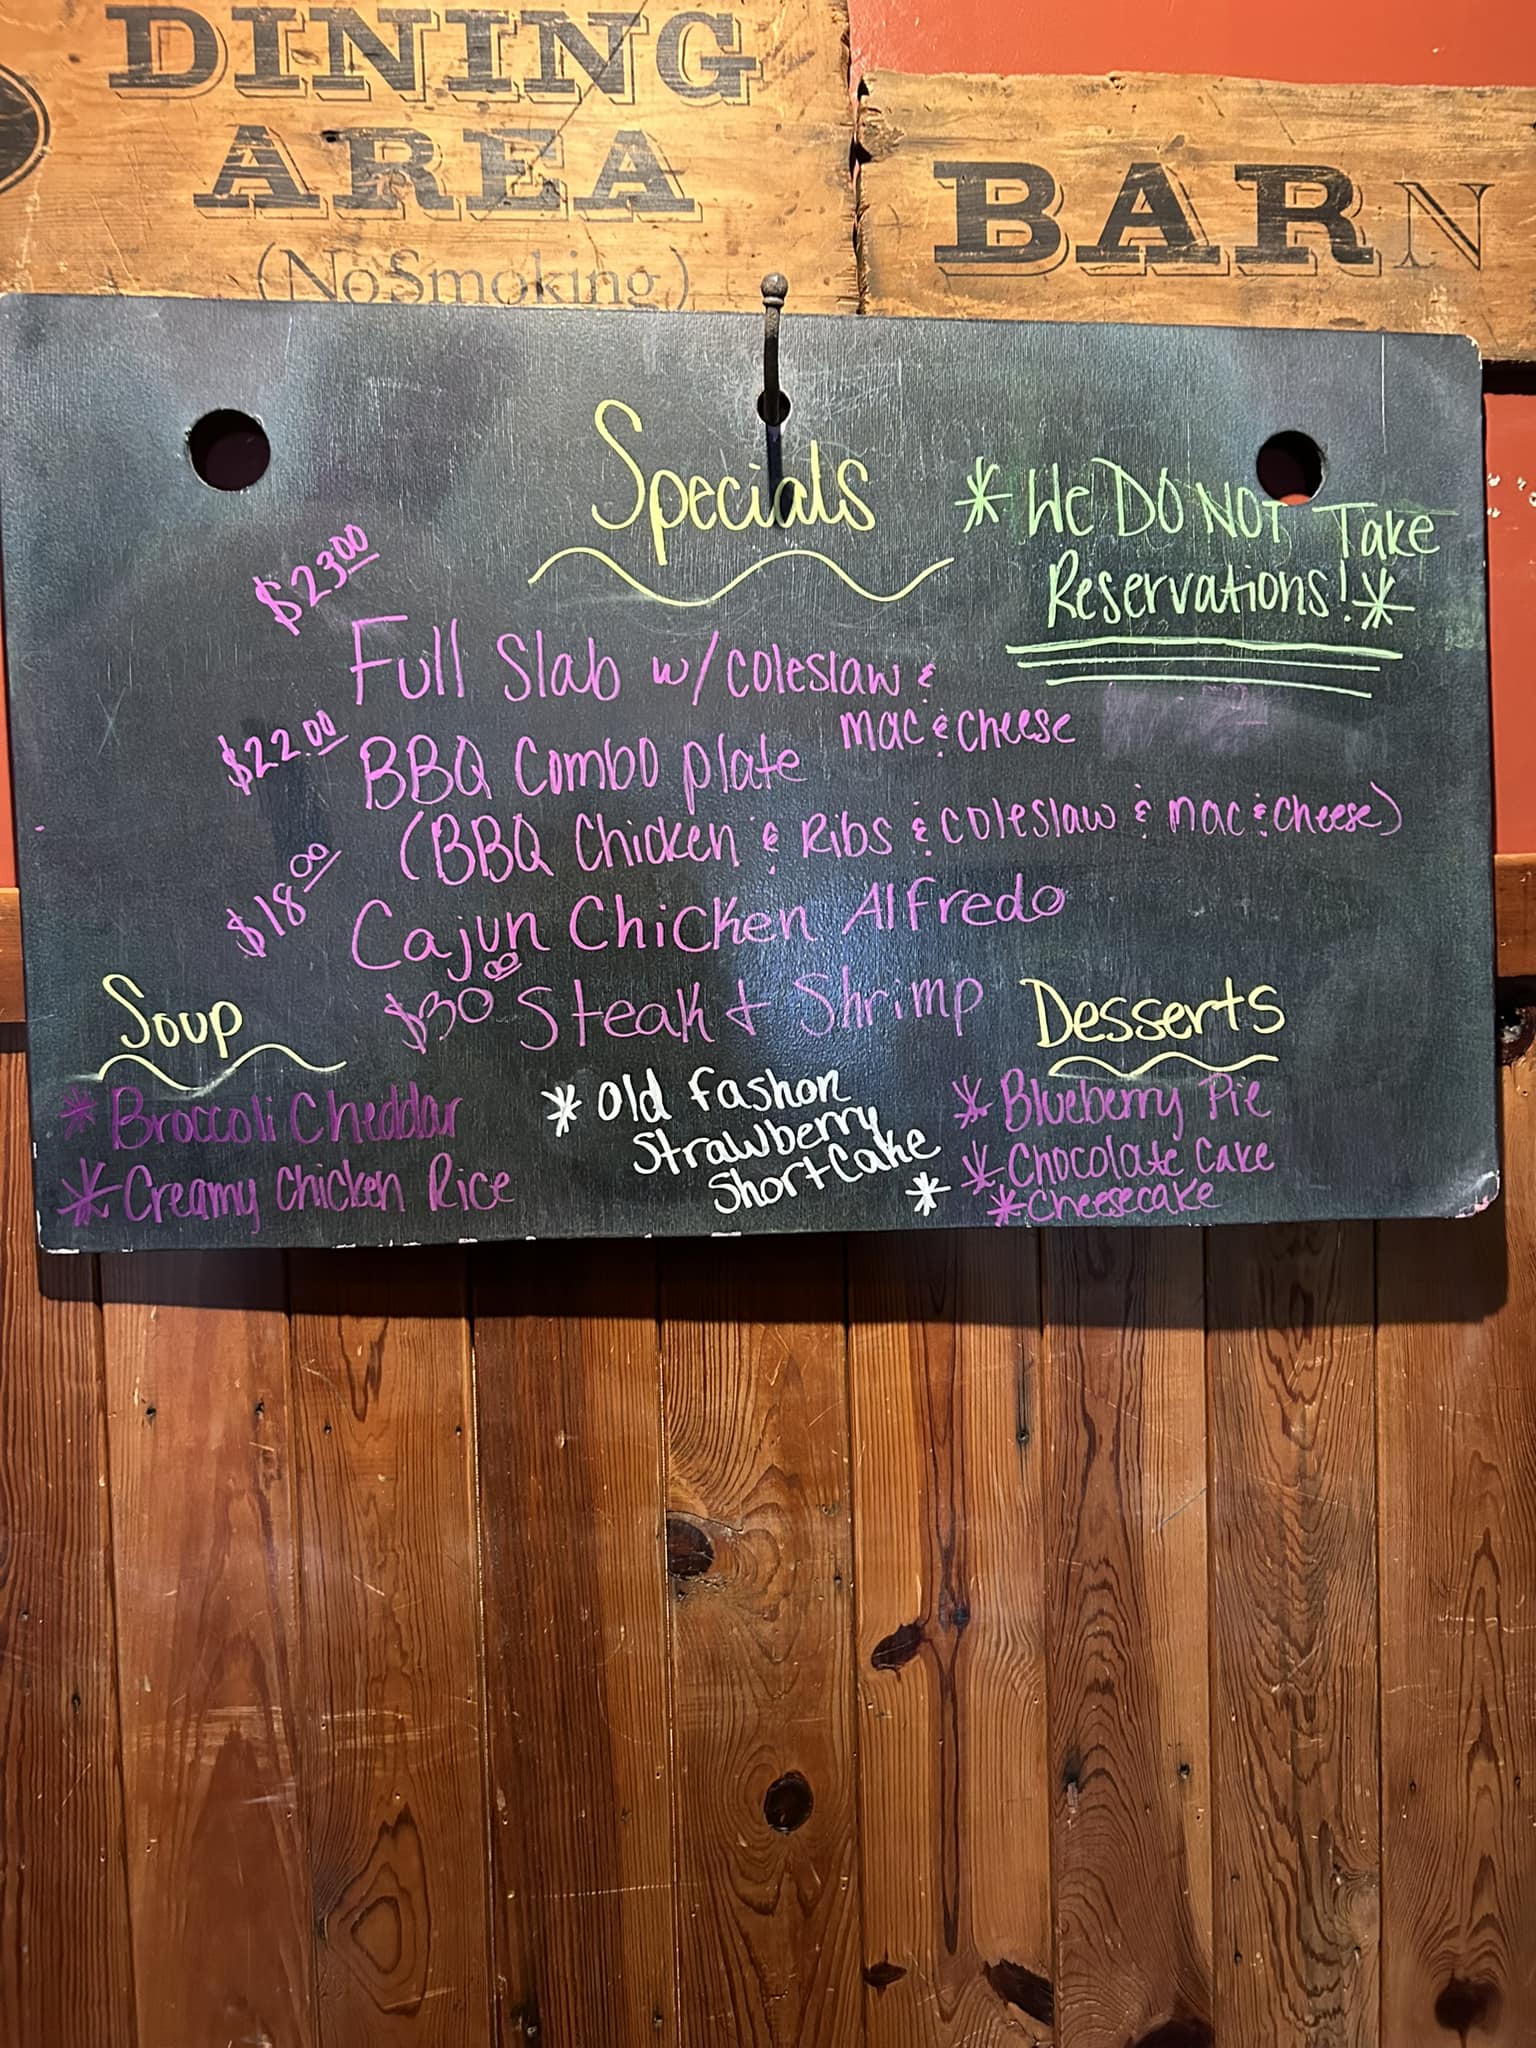 DINING
AREA
(No Smoking)
BARN
Specials
* We DO NOT Take
Reservations! *
$23.00
Full Slab w/ coleslaw &
mac & cheese
$22.00
BBQ Combo plate
(BBQ Chicken & Ribs & coleslaw & mac & cheese)
$18.00
Cajun Chicken Alfredo
$30.00 Steak + Shrimp
Soup
* Broccoli Cheddar
* Creamy Chicken Rice
* Old Fashon
Strawberry
Shortcake *
Desserts
* Blueberry Pie
* Chocolate Cake
* Cheesecake